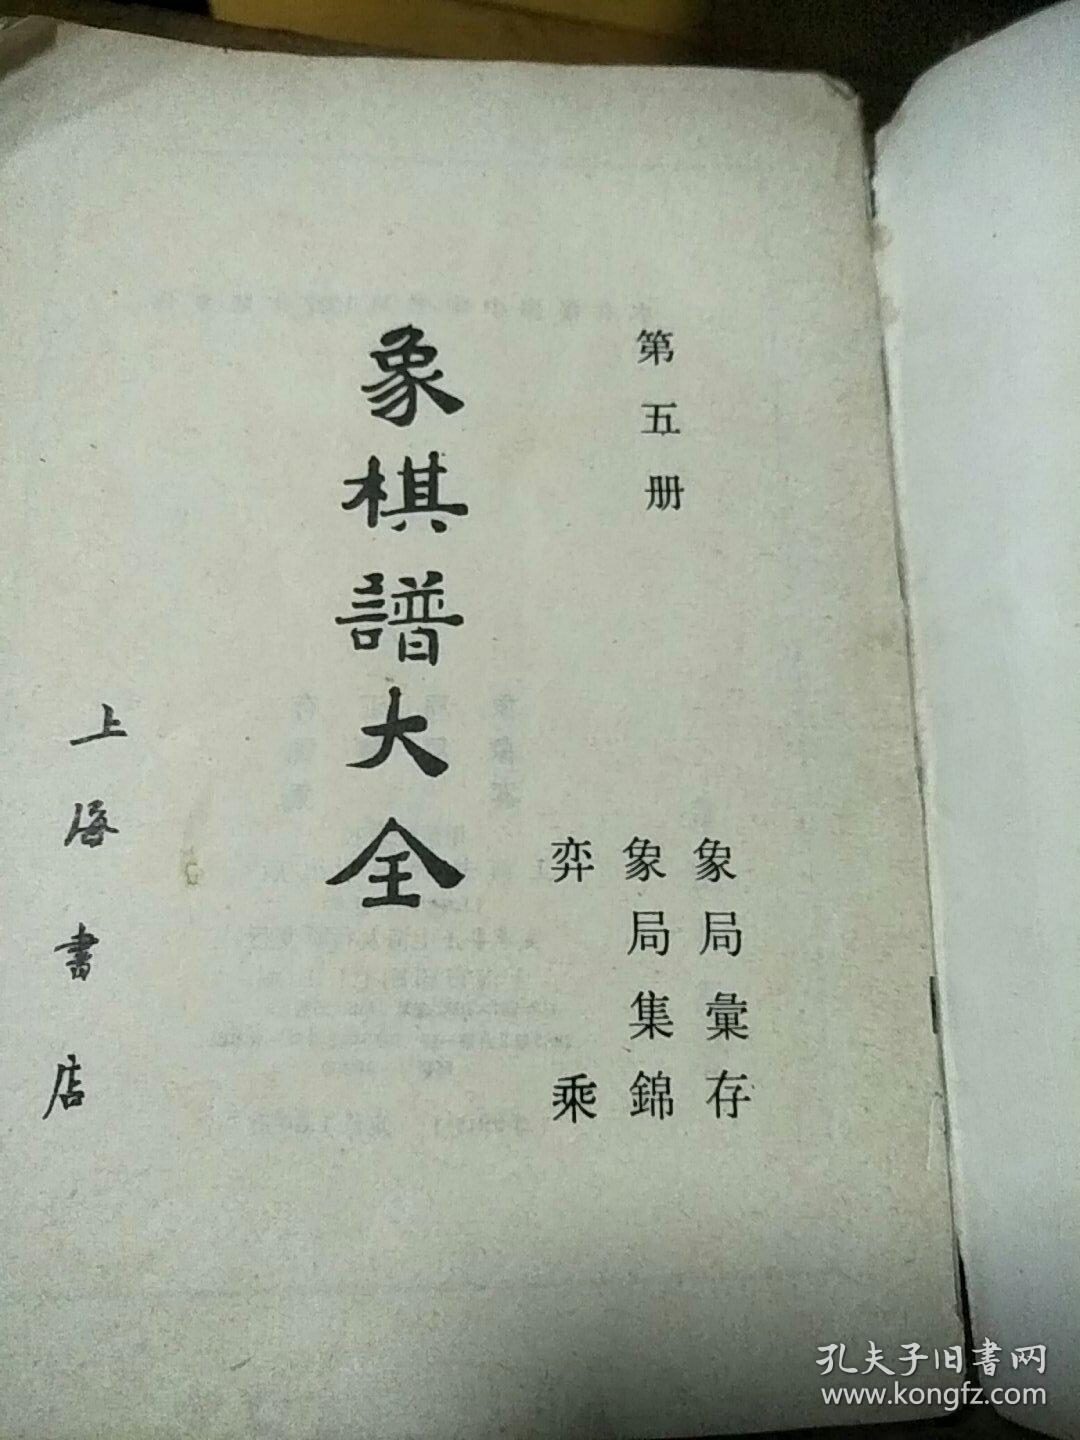 第五册
象局彙存
象局集錦
弈乘
象棋譜大全
上海書店
孔夫子旧書网
www.kongfz.com